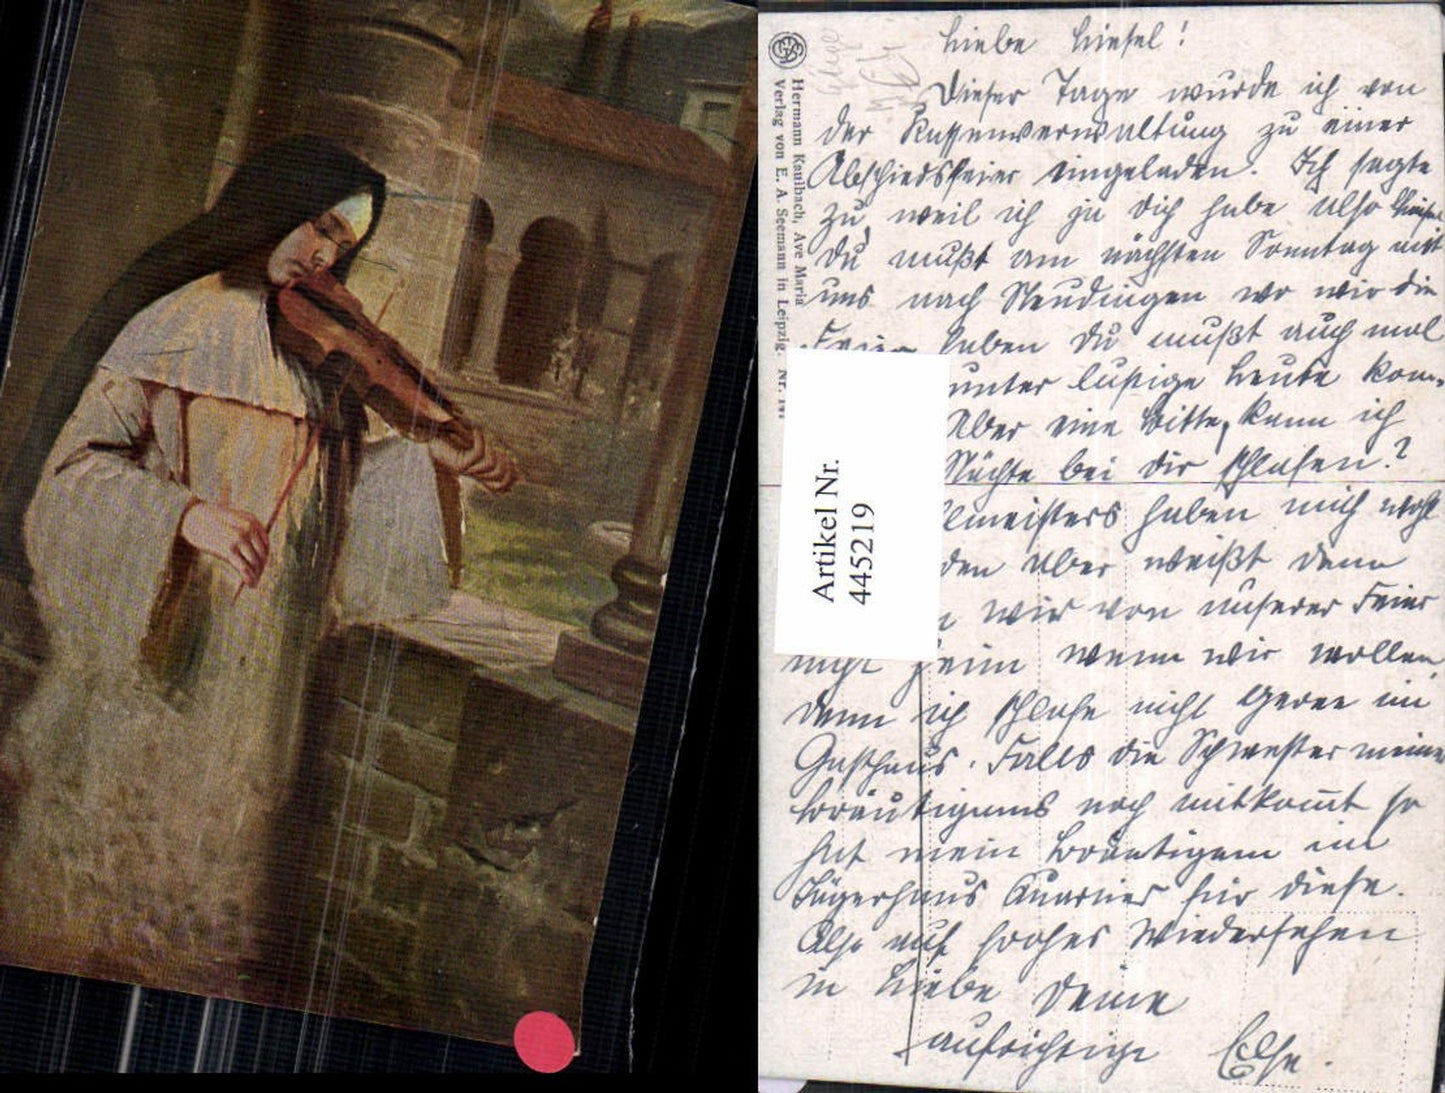 Hermann Kaulbach, Ave Maria
Verlag von E. A. Seemann in Leipzig. Nr. 191
Liebe Liesel!
Dieser Tage wurde ich von
der Kassenverwaltung zu einer
Abschiedsfeier eingeladen. Ich sagte
zu weil ich ja dich habe also Liesel
Du mußt am nächsten Sonntag mit
uns nach Neudingen wo wir die
Feier haben Du mußt auch mal
unter lustige Leute kom-
Aber eine Bitte, kann ich
Nächte bei dir schlafen?
lmeisters haben mich wohl
den aber weißt dann
wir von unserer Feier
nicht heim wenn wir wollen
denn ich schlafe nicht gerne im
Gasthaus. Falls die Schwester meines
Bräutigams noch mitkomt so
hat mein Bräutigam im
Jägerhaus Quartier für diese.
Also auf frohes Wiedersehen
in Liebe Deine
aufrichtige Else.
Artikel Nr.
445219